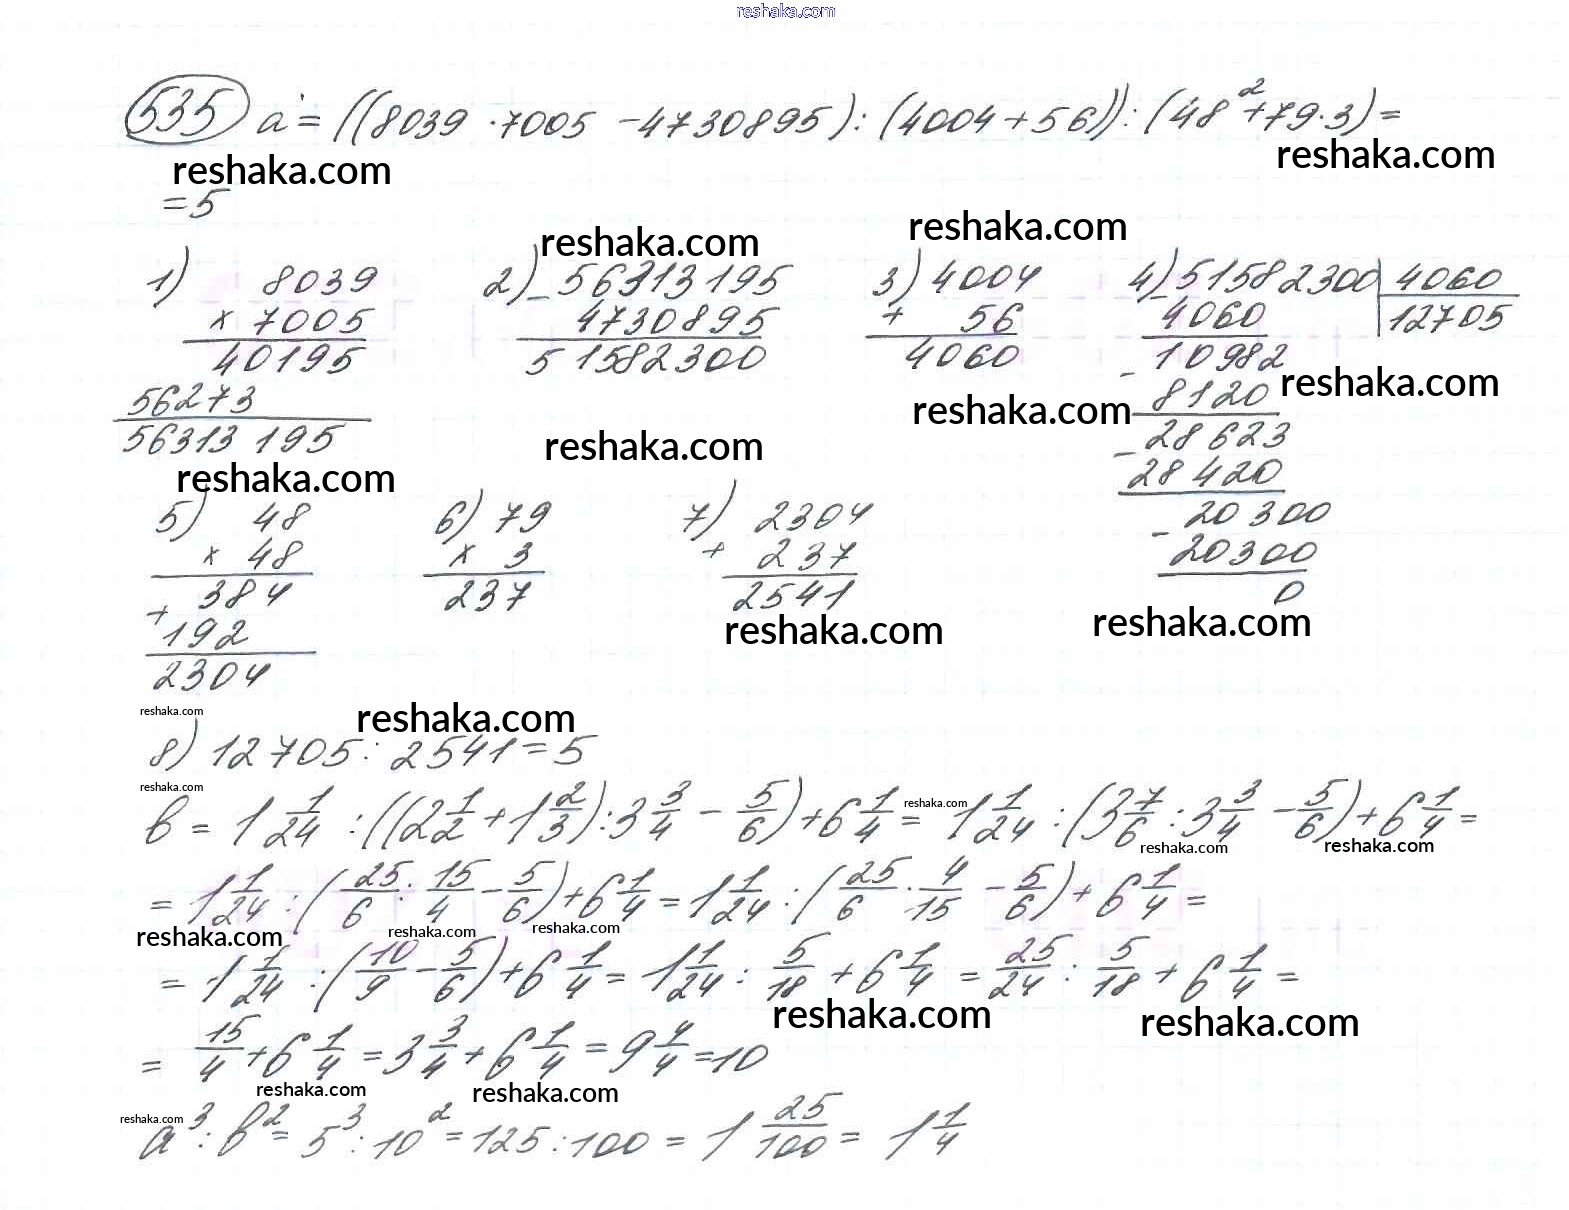 reshaka.com
535 a = ((8039 · 7005 - 4730895) : (4004 + 56)) : (48² + 79 · 3) =
reshaka.com reshaka.com
= 5
reshaka.com reshaka.com
1) 8039
× 7005
40195
56273
56313195
2) - 56313195
4730895
51582300
3) 4004
+ 56
4060
4) - 51582300 | 4060
4060 | 12705
- 10982
8120
- 28623
28420
- 20300
20300
0
reshaka.com reshaka.com
reshaka.com
reshaka.com
5) 48
× 48
384
+ 192
2304
6) 79
× 3
237
7) 2304
+ 237
2541
reshaka.com reshaka.com
reshaka.com reshaka.com
8) 12705 : 2541 = 5
reshaka.com
b = 1 1/24 : ((2 1/2 + 1 2/3) : 3 3/4 - 5/6) + 6 1/4 = 1 1/24 : (3 7/6 : 3 3/4 - 5/6) + 6 1/4 =
reshaka.com reshaka.com reshaka.com
= 1 1/24 : (25/6 : 15/4 - 5/6) + 6 1/4 = 1 1/24 : (25/6 · 4/15 - 5/6) + 6 1/4 =
reshaka.com reshaka.com reshaka.com
= 1 1/24 : (10/9 - 5/6) + 6 1/4 = 1 1/24 : 5/18 + 6 1/4 = 25/24 : 5/18 + 6 1/4 =
reshaka.com reshaka.com
= 15/4 + 6 1/4 = 3 3/4 + 6 1/4 = 9 4/4 = 10
reshaka.com reshaka.com
reshaka.com
a³ : b² = 5³ : 10² = 125 : 100 = 1 25/100 = 1 1/4